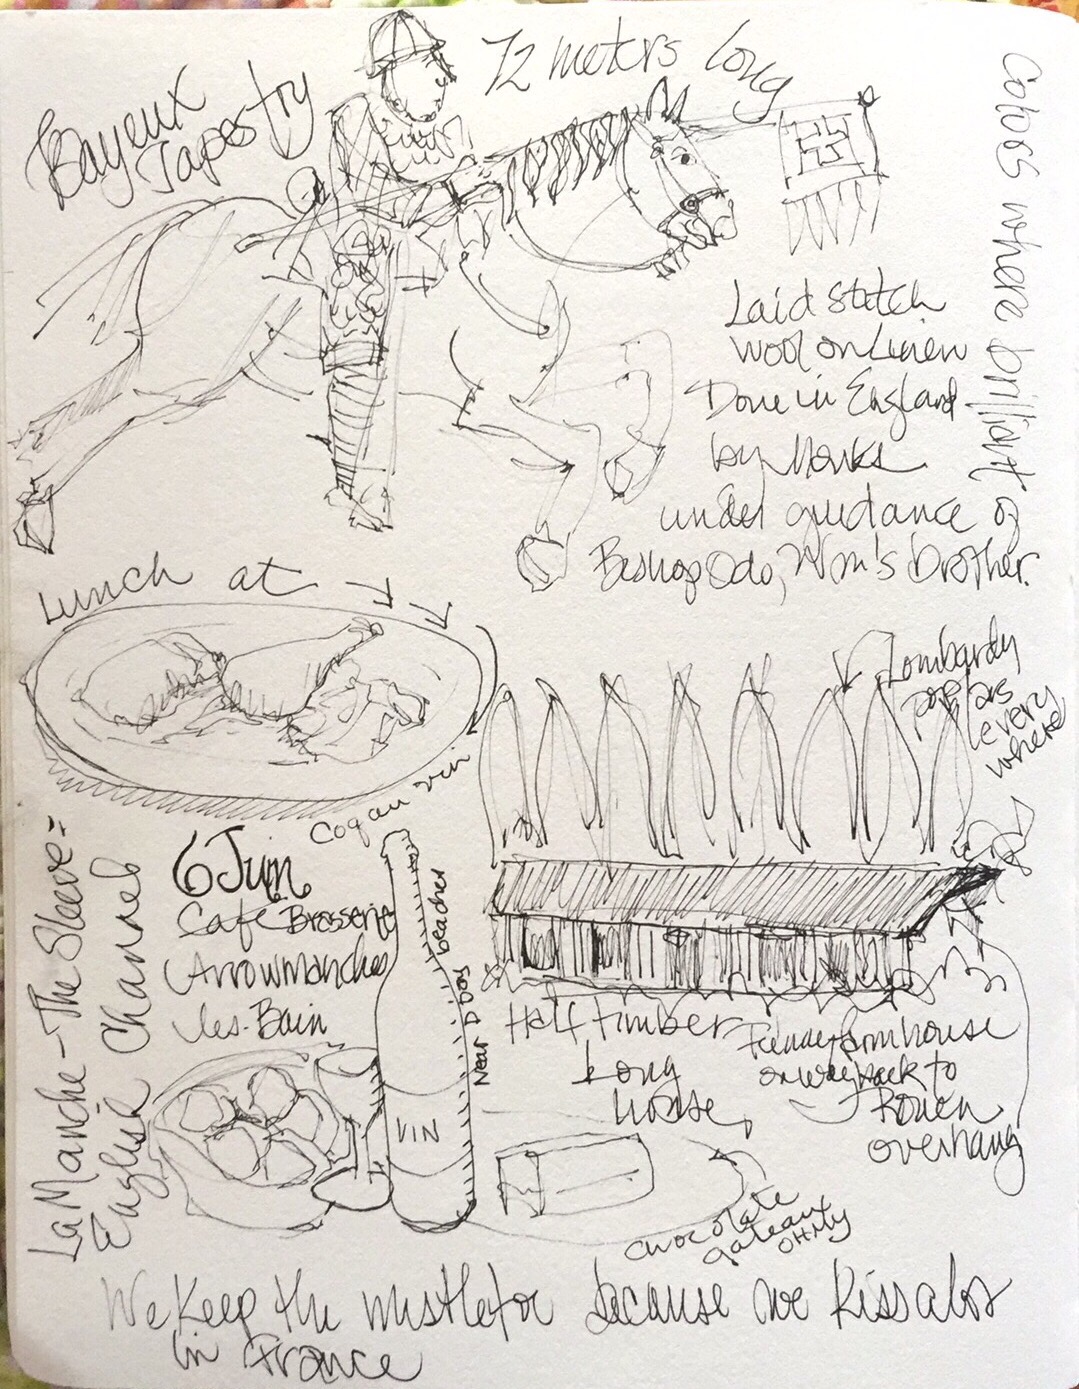 Bayeux
Tapestry
72 meters long
Colors where brilliant
Laid stitch
wool on Linen
Done in England
by Monks
under guidance of
Bishop Odo, Wm's brother.
Lunch at
Coq au vin
Lombardy
poplars
every
where
6 Juin
Café Brasserie
Arrowmanches
les-Bain
La Manche - The Sleeve =
English Channel
Near D Day beaches
VIN
Half timber
Long
house
farmhouse
on way back to
Rouen
overhang
chocolate
gateaux
OH MY
We Keep the mistletoe because we Kiss alot
in France